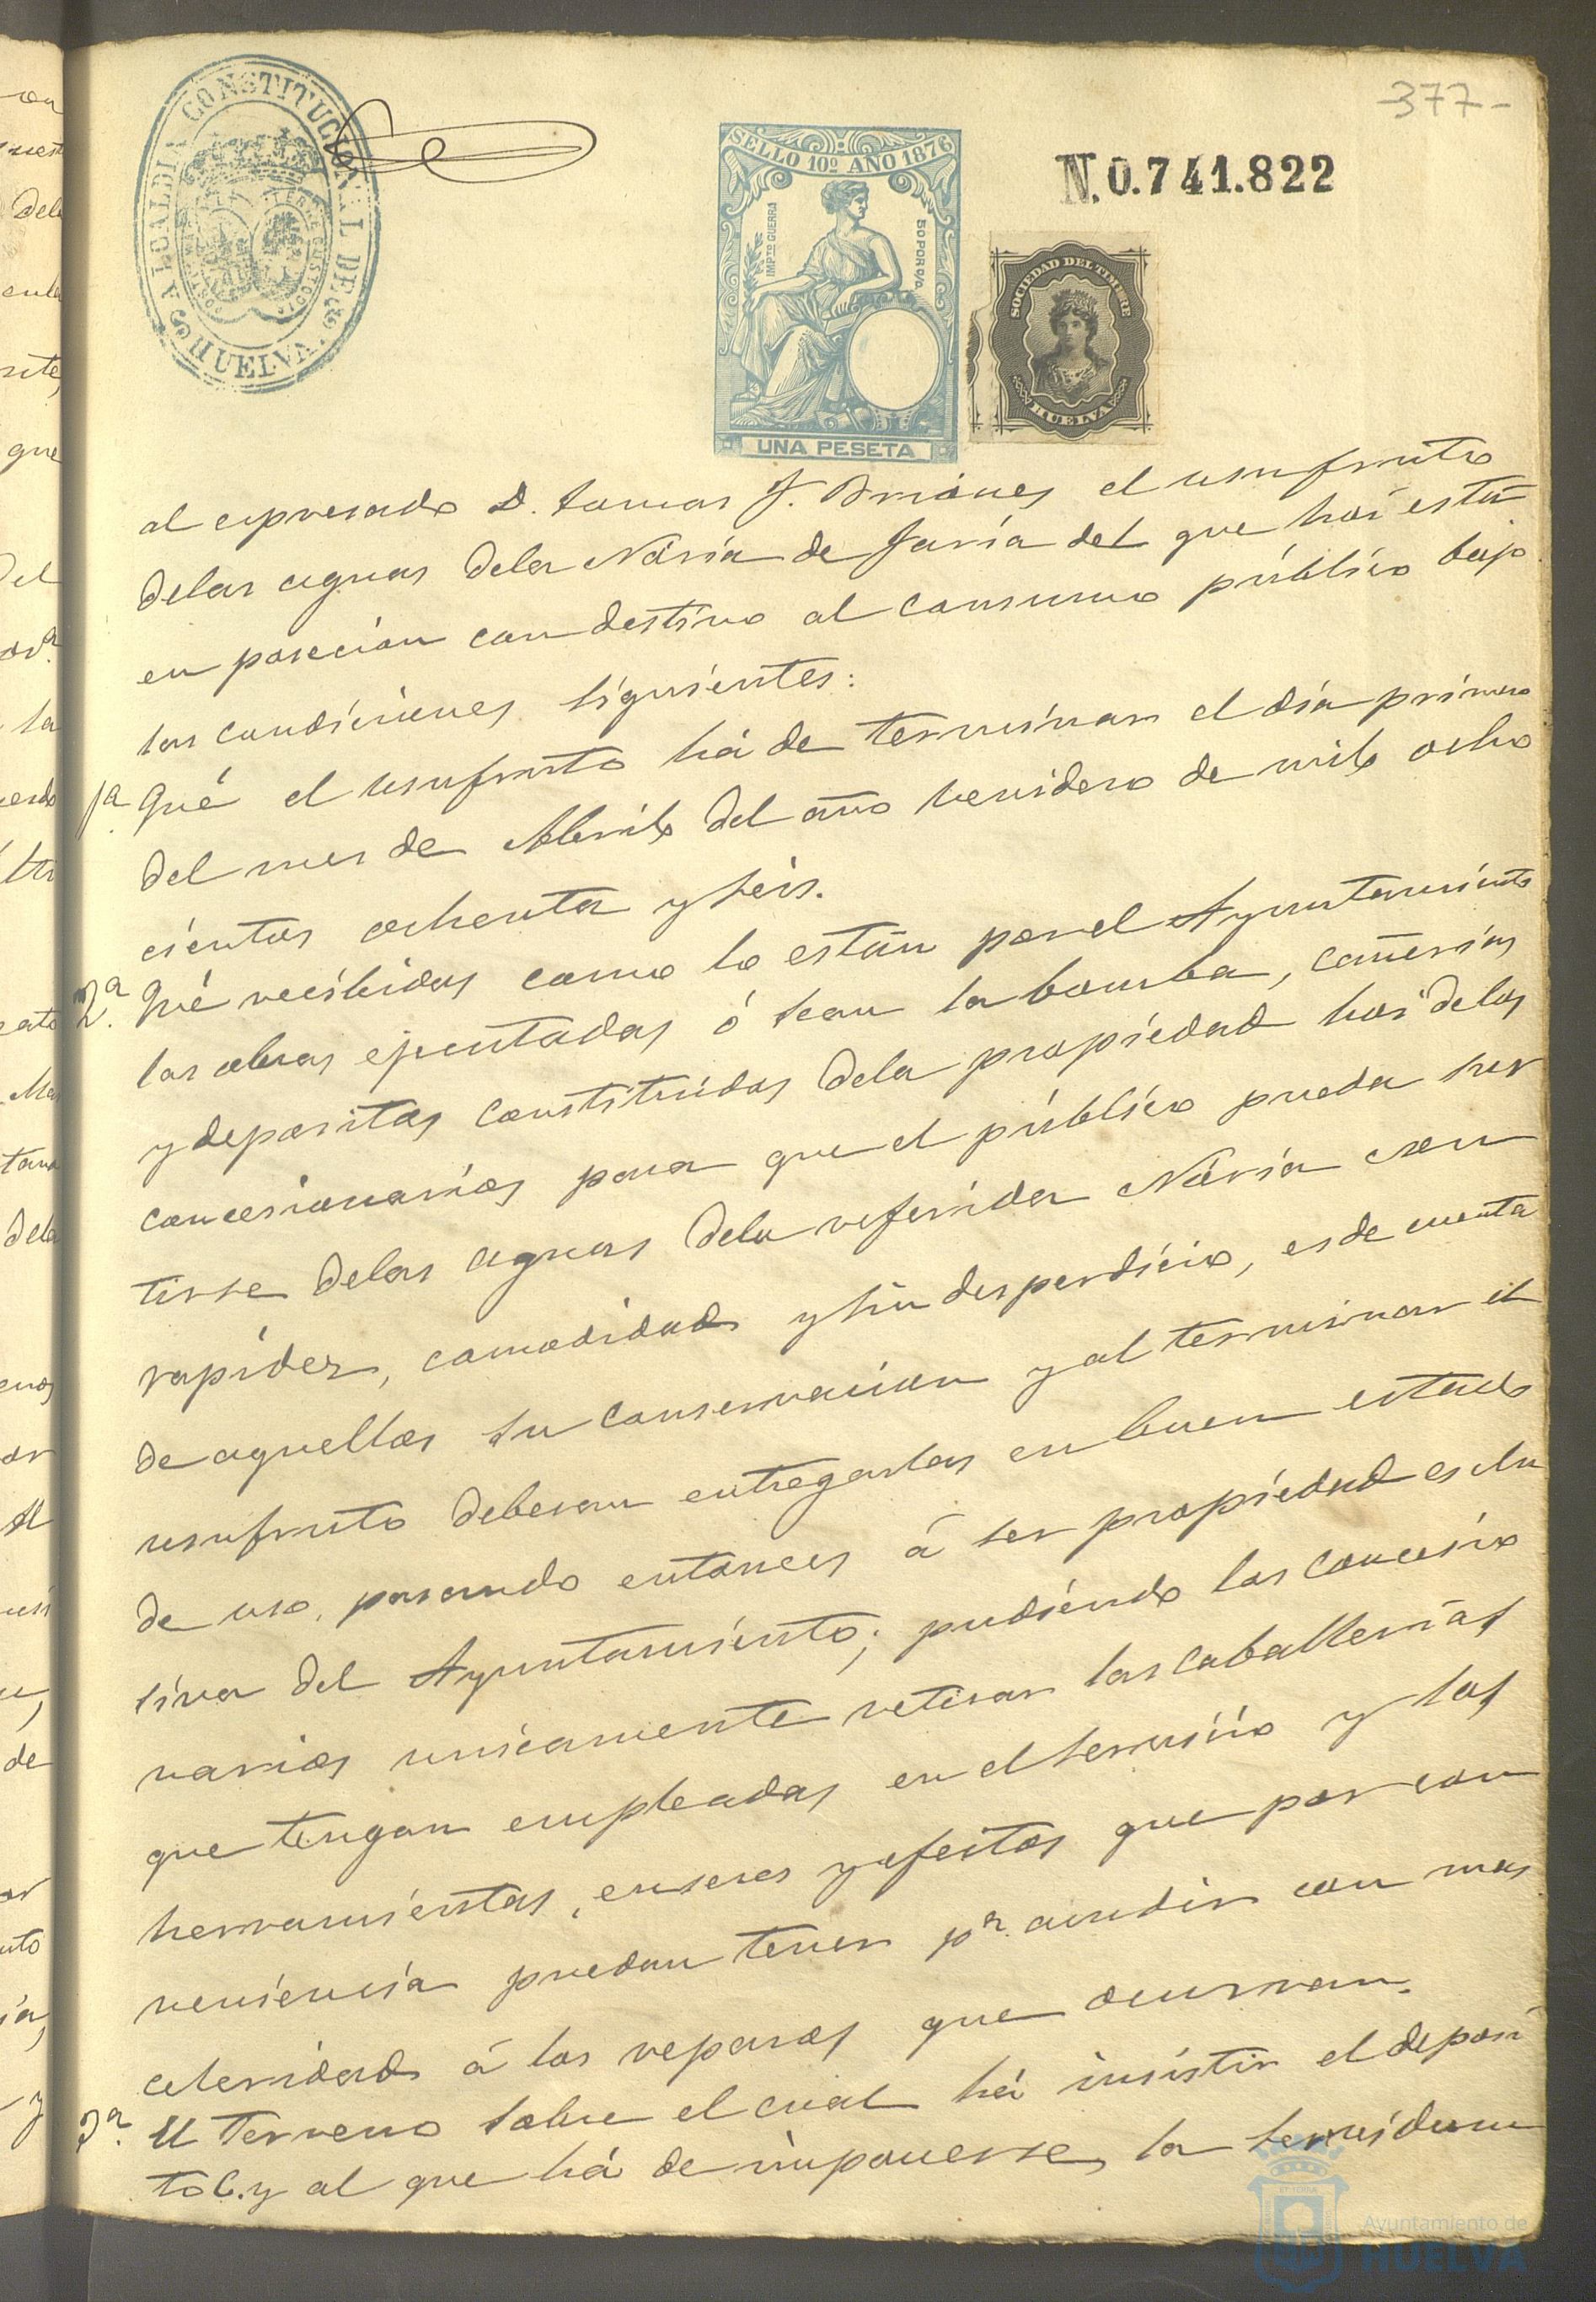 -377-
ALCALDIA CONSTITUCIONAL DE
HUELVA
SELLO 10º AÑO 1876
IMPTO GUERRA
50 POR 0/0
UNA PESETA
N.0.741.822
SOCIEDAD DEL TIMBRE
HUELVA
al espresado D. Tomas J. Briones el usufruto
delas aguas dela Nória de Jaría del que hoi están
en poseción con destino al consumo público bajo
las condiciones siguientes:
1ª Qué el usufruto há de terminar el día primero
del mes de Abril del año venidero de mil ocho
cientos ochenta y seis.
2ª. Qué recibidas como lo están por el Ayuntamiento
las obras ejecutadas ó sean la bomba, cañerias
y depositos constituidos dela propiedad hoi delos
concesionarios para que el público pueda sur
tirse delas aguas dela referida Nória con
rapídez, comodidad y sin desperdicio, es de cuenta
de aquellos su conservacion y al terminar el
usufruto deberan entregarlas en buen estado
de uso, pasando entonces á ser propiedad esclu
siva del Ayuntamiento; pudiendo los concesio
narios unicamente retirar las caballerias
que tengan empleadas en el servicio y las
herramientas, enseres y efectos que por con
veniencia puedan tener pª acudir con mas
celeridad á los reparos que ocurran.
3ª. El terreno sobre el cual há insistir el deposi
to C. y al que há de imponerse la servidum
Ayuntamiento de
HUELVA